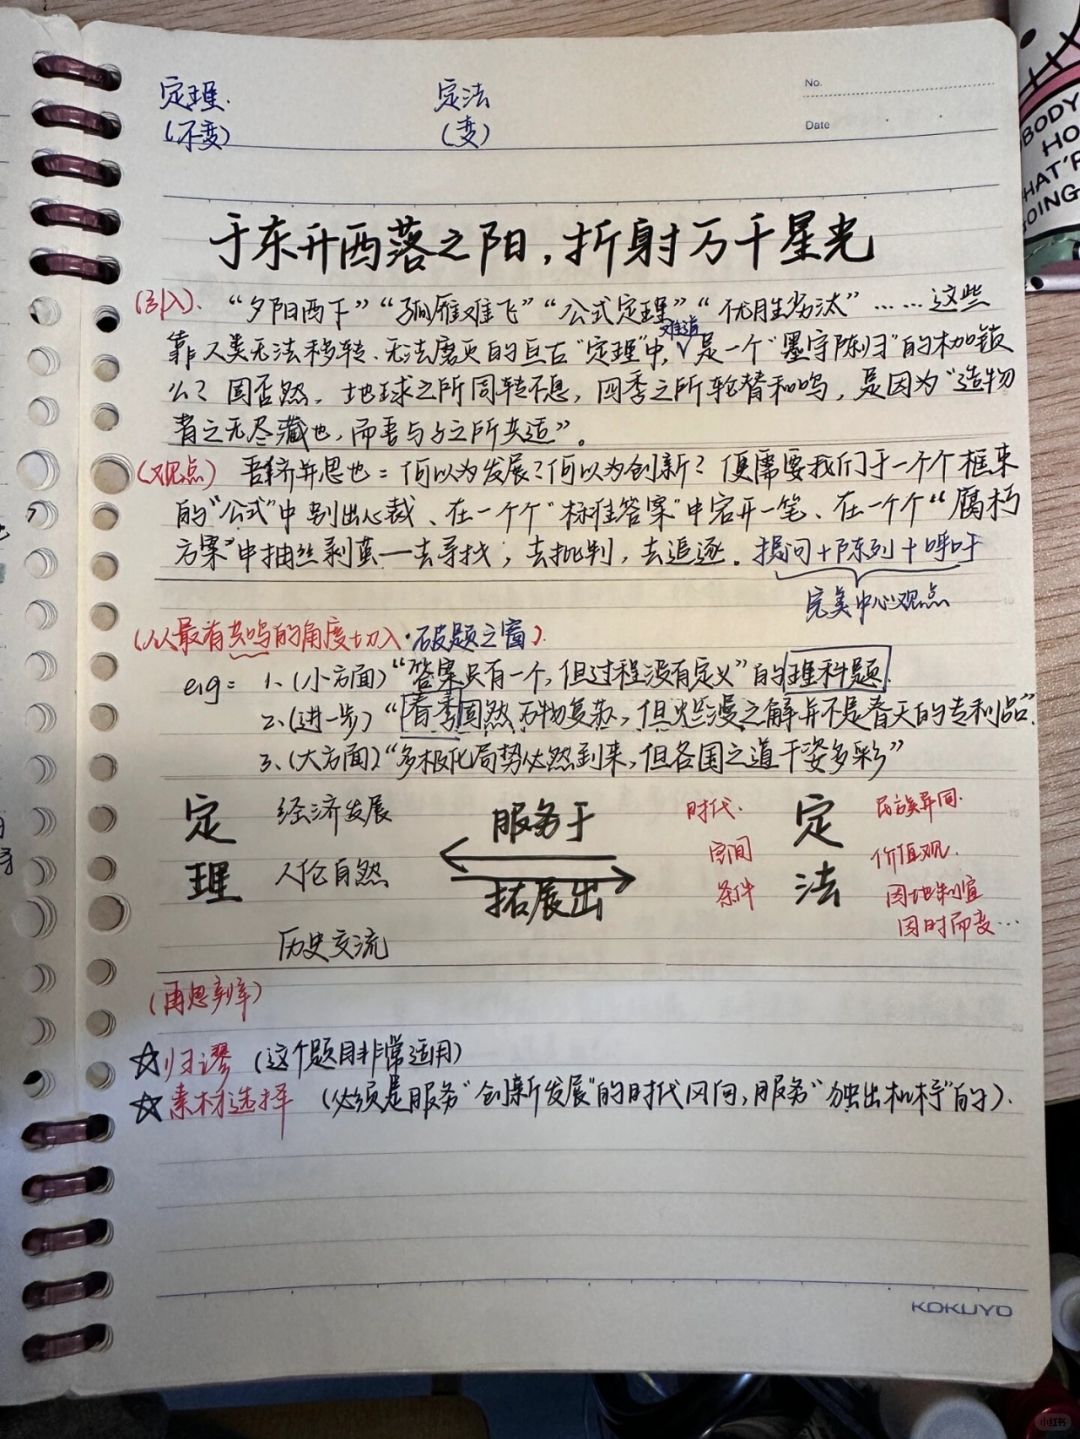 定理. 定法
(不变) (变)
No.
Date
于东升西落之阳，折射万千星光
(引入). “夕阳西下”“孤雁难飞”“公式定理”“优胜劣汰”……这些
靠人类无法移转、无法磨灭的亘古“定理”中，难道是一个“墨守陈归”的枷锁
么？固否然，地球之所周转不息，四季之所轮替和鸣，是因为“造物
者之无尽藏也，而吾与子之所共适”。
(观点) 吾辈并思也：何以为发展？何以为创新？便需要我们于一个个框束
的“公式”中别出心裁、在一个个“标准答案”中宕开一笔、在一个个“腐朽
方案”中抽丝剥茧——去寻找，去批判，去追逐。提问+陈列+呼吁
完美中心观点
(从最有共鸣的角度切入·破题之窗).
eg: 1、(小方面)“答案只有一个，但过程没有定义”的理科题.
2、(进一步)“春季固然万物复苏，但烂漫之解并不是春天的专利品”.
3、(大方面)“多极化局势必然到来，但各国之道千姿多彩”
定理 经济发展 人伦自然 历史交流
服务于
拓展出
时代. 空间 条件
定法
民族异同. 价值观. 因地制宜 因时而变…
(再思辨)
☆归谬 (这个题目非常适用)
☆素材选择 (必须是服务“创新发展”的时代风向，服务“独出机杼”的).
KOKUYO
BODY
HO
HAT'S
OING
小红书